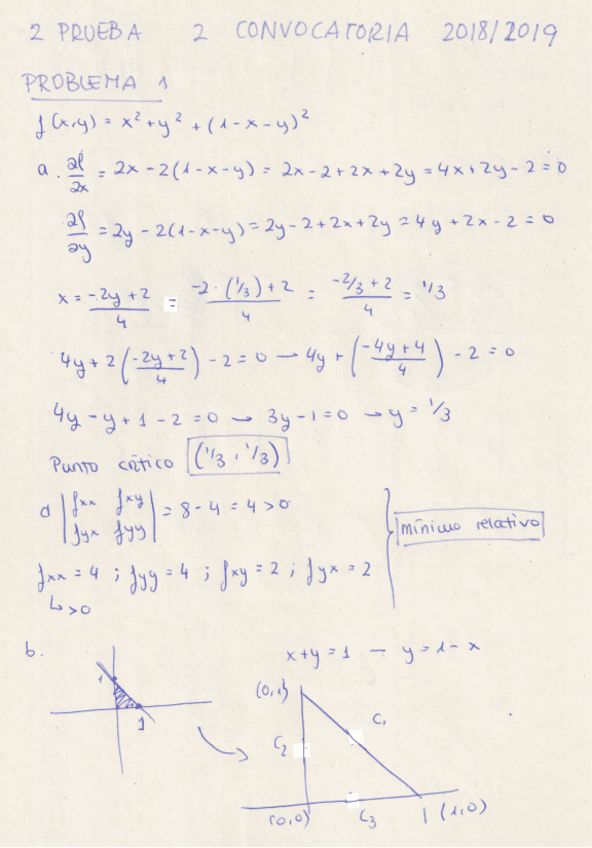 2 PRUEBA 2 CONVOCATORIA 2018/2019
PROBLEMA 1
f(x,y) = x² + y² + (1-x-y)²
a. ∂f/∂x = 2x - 2(1-x-y) = 2x - 2 + 2x + 2y = 4x + 2y - 2 = 0
∂f/∂y = 2y - 2(1-x-y) = 2y - 2 + 2x + 2y = 4y + 2x - 2 = 0
x = (-2y+2)/4 = (-2·(1/3)+2)/4 = (-2/3+2)/4 = 1/3
4y + 2((-2y+2)/4) - 2 = 0 → 4y + ((-4y+4)/4) - 2 = 0
4y - y + 1 - 2 = 0 → 3y - 1 = 0 → y = 1/3
Punto crítico (1/3, 1/3)
d |fxx fxy| = 8 - 4 = 4 > 0
|fyx fyy|
mínimo relativo
fxx = 4 ; fyy = 4 ; fxy = 2 ; fyx = 2
↳ >0
b.
x+y = 1 → y = 1-x
1
1
(0,1)
C1
C2
(0,0)
C3
1 (1,0)